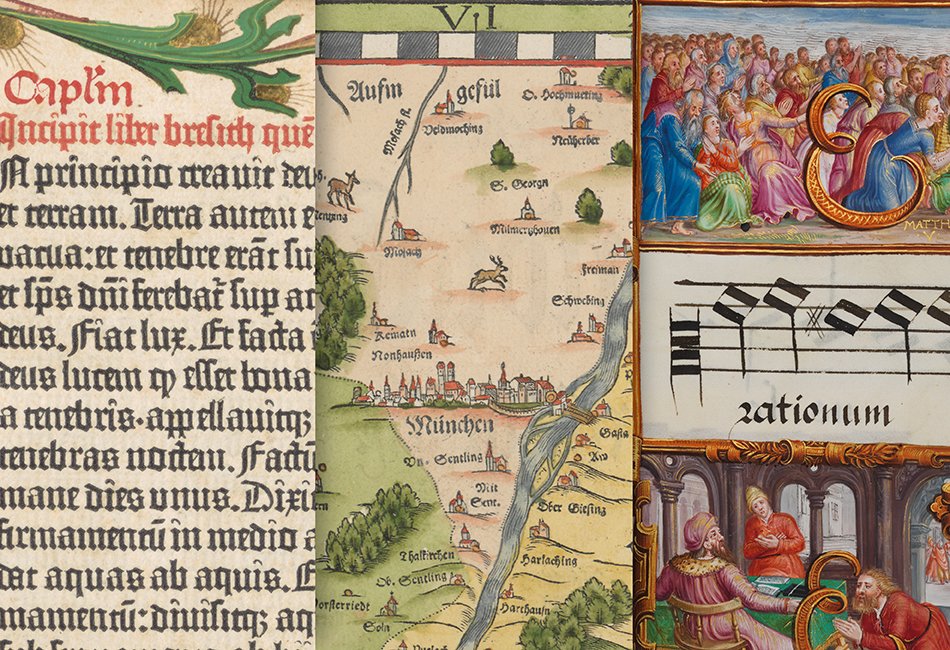 Capl'm
Incipit liber bresith quē
N principio creauit deu
et terram. Terra autem e
vacua: et tenebre erāt su
et sp̄s dn̄i ferebat̄ sup a
deus. Fiat lux. Et facta
deus lucem ꝙ esset bona
a tenebris. appellauitqꝫ
tenebras noctem. Factū
mane dies vnus. Dixi
firmamentū in medio a
dat aquas ab aquis. E
mamentū: diuisitqꝫ aq
VII
Aufm gefül
O. Hochmueting
Mosach fl.
Veldmoching
Neüherber
S. Georgn
Milmerzhouen
Mosach
Freiman
Schwebing
Kematn
Nonhaußen
München
Gasta
Vn. Sentling
Aw
Mit
Sent.
Ober Giesing
Thalkirchen
Harlaching
Ob. Sentling
Forsterriedt
Harthausn
Soln
MATTH
V
rationum